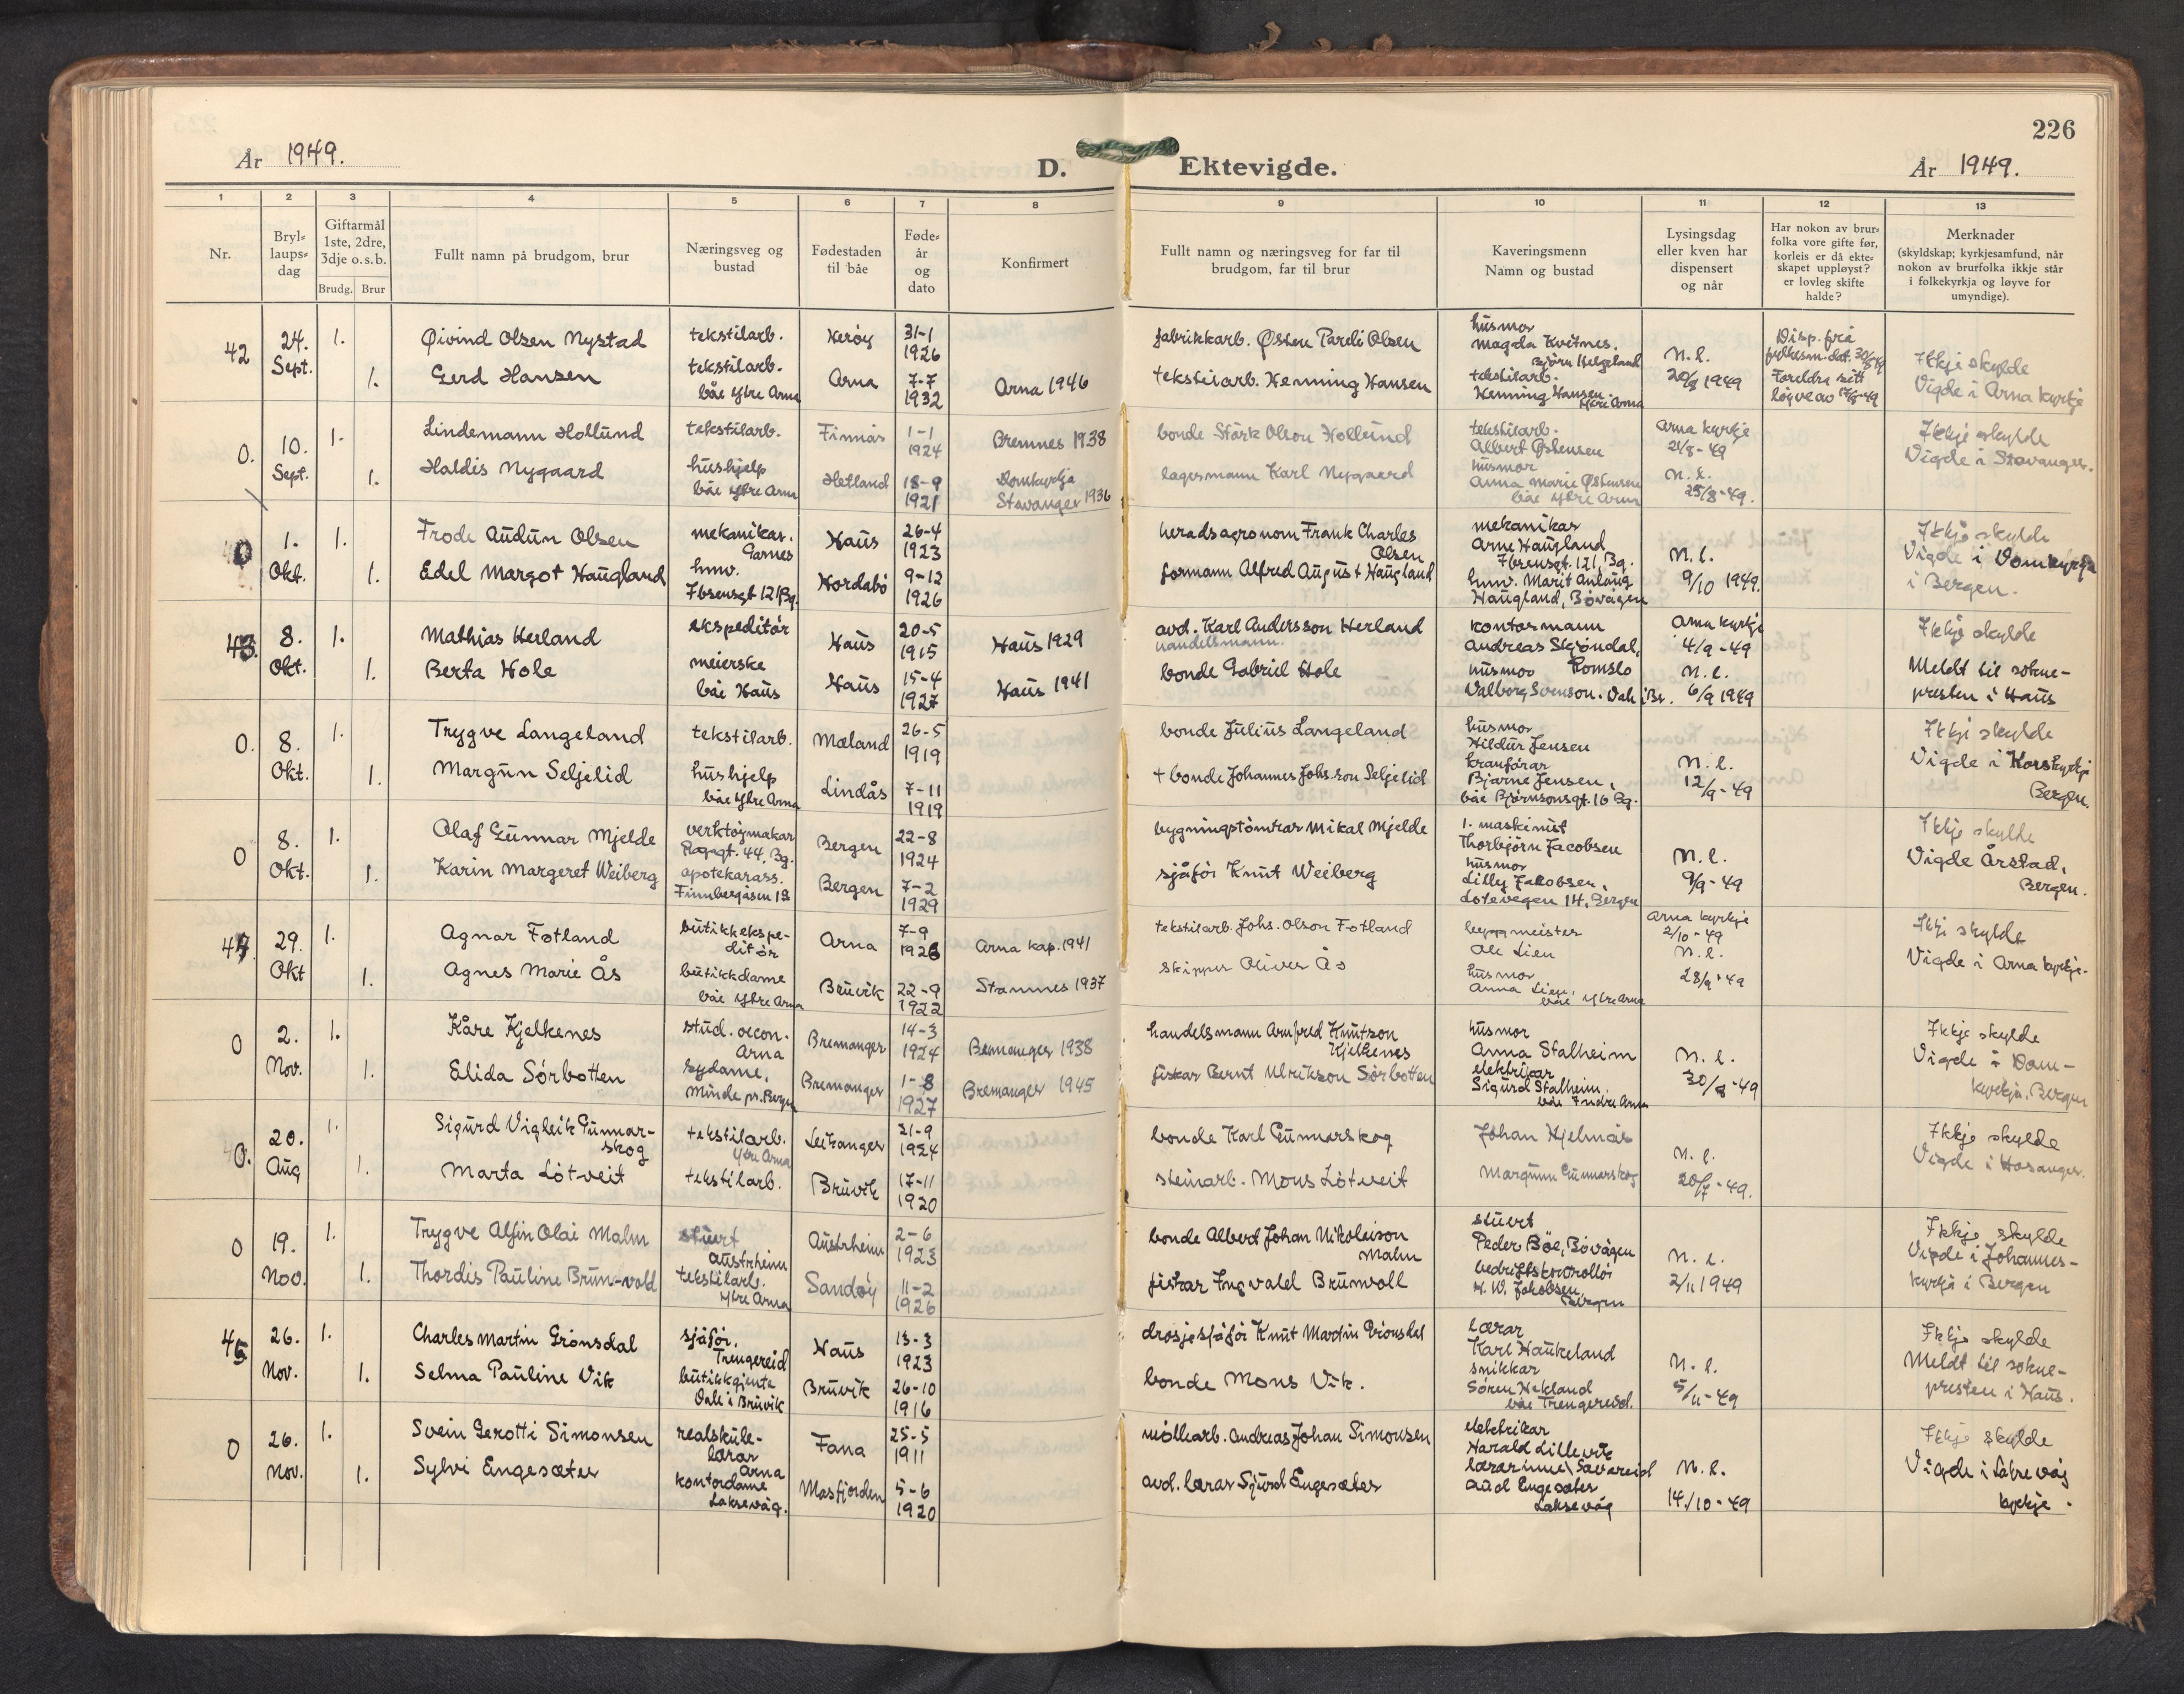 226
År 1949.
D. Ektevigde.
År 1949.
1 2 3 4 5 6 7 8 9 10 11 12 13
Nr.
Bryl-
laups-
dag
Giftarmål
1ste, 2dre,
3dje o.s.b.
Brudg. Brur
Fullt namn på brudgom, brur
Næringsveg og
bustad
Fødestaden
til båe
Føde-
år
og
dato
Konfirmert
Fullt namn og næringsveg for far til
brudgom, far til brur
Kaveringsmenn
Namn og bustad
Lysingsdag
eller kven har
dispensert
og når
Har nokon av brur-
folka vore gifte før,
korleis er då ekte-
skapet uppløyst?
er lovleg skifte
halde?
Merknader
(skyldskap; kyrkjesamfund, når
nokon av brurfolka ikkje står
i folkekyrkja og løyve for
umyndige).
42
24.
Sept.
1.
1.
Øivind Olsen Nystad
Gerd Hansen
tekstilarb.
tekstilarb.
båe Ytre Arna
Herøy
Arna
31-1
1926
7-7
1932
Arna 1946
fabrikkarb. Østen Pareli Olsen
tekstilarb. Henning Hansen
husmor
Magda Kvitnes.
Bjørn Helgeland
tekstilarb.
Henning Hansen.
Ytre Arna
n.l.
20/8 1949
Disp. frå
fylkesm. dat. 30/8 49
Foreldre sitt
løyve av 17/8-49
Ikkje skylde
Vigde i Arna kyrkje
0.
10.
Sept.
1.
1.
Lindemann Hollund
Haldis Nygaard
tekstilarb.
hushjelp
båe Ytre Arna
Finnås
Hetland
1-1
1924
18-9
1921
Bremnes 1938
Domkyrkja
Stavanger 1936
bonde Stark Olson Hollund
lagersmann Karl Nygaard
tekstilarb.
Albert Østensen
husmor
Anna Marie Østensen
båe Ytre Arna
Arna kyrkje
21/8-49
n.l.
25/8-49.
Ikkje skylde
Vigde i Stavanger.
0
1.
Okt.
1.
1.
Frode Audun Olsen
Edel Margot Haugland
mekanikar.
Garnes
hmv.
Ibsensgt 121, Bg.
Haus
Hordabø
26-4
1923
9-12
1926
heradsagronom Frank Charles
Olsen
formann Alfred August Haugland
mekanikar
Arne Haugland
Ibsensgt. 121, Bg.
hmv. Marit Anlaug
Haugland, Bøvågen
n.l.
9/10 1949.
Ikkje skylde
Vigde i Domkyrkja
i Bergen.
43.
8.
Okt.
1.
1.
Mathias Herland
Berta Hole
ekspeditør
meierske
båe Haus
Haus
Haus
20-5
1915
15-4
1927
Haus 1929
Haus 1941
avd. Karl Andersson Herland
handelsmann.
bonde Gabriel Hole
kontormann
Andreas Skjøndal,
husmor Romslo
Valborg Svenson. Dale i Br.
Arna kyrkje
4/9-49
n.l.
6/9 1949
Ikkje skylde
Meldt til sokne-
presten i Haus
0.
8.
Okt.
1.
1.
Trygve Langeland
Margun Seljelid
tekstilarb.
hushjelp
båe Ytre Arna
Mæland
Lindås
26-5
1919
7-11
1919
bonde Julius Langeland
+ bonde Johannes Johs.son Seljelid
husmor
Hildur Jensen
kranførar
Bjarne Jensen,
båe Bjørnsonsgt. 16 Bg.
n.l.
12/9-49
Ikkje skylde
Vigde i Korskyrkje
Bergen.
0
8.
Okt.
1.
1.
Olaf Gunnar Mjelde
Karin Margeret Weiberg
verktøymakar
44, Bg.
apotekarass.
Finnbergåsen 18
Bergen
Bergen
22-8
1924
7-2
1929
bygningstømrar Mikal Mjelde
sjåfør Knut Weiberg
1. maskinist
Thorbjørn Jacobsen
husmor
Lilly Jakobsen,
Lotevegen 14, Bergen
n.l.
9/9-49
Ikkje skylde
Vigde Årstad,
Bergen.
44.
29.
Okt
1.
1.
Agnar Fotland
Agnes Marie Ås
butikkekspe-
ditør
butikkdame
båe Ytre Arna
Arna
Bruvik
7-9
1926
22-9
1922
Arna kap. 1941
Stamnes 1937
tekstilarb. Johs. Olson Fotland
skipper Oliver Ås
byggmeister
Ole Lien
husmor
Anna Lien,
båe Ytre Arna
Arna kyrkje
2/10-49
n.l.
28/9-49
Ikkje skylde
Vigde i Arna kyrkje.
0
2.
Nov.
1.
1.
Kåre Kjelkenes
Elida Sørbotten
stud. oecon.
Arna
sydame,
Minde pr. Bergen
Bremanger
Bremanger
14-3
1924
1-8
1927
Bremanger 1938
Bremanger 1945
handelsmann Arnfred Knutson
Kjelkenes
fiskar Bernt Ulrikson Sørbotten
husmor
Anna Stalheim
elektrikar
Sigurd Stalheim.
båe Indre Arna
n.l.
30/8-49
Ikkje skylde
Vigde i Dom-
kyrkja, Bergen
0.
20.
Aug
1.
1.
Sigurd Vigleik Gunnar-
skog
Marta Lotveit
tekstilarb.
Ytre Arna
tekstilarb.
Leikanger
Bruvik
21-9
1924
17-11
1920
bonde Karl Gunnarskog
steinarb. Mons Lotveit
Johan Hjelmås
Margunn Gunnarskog
n.l.
20/7-49.
Ikkje skylde
Vigde i Hosanger.
0
19.
Nov.
1.
1.
Trygve Alfin Olai Malm
Thordis Pauline Brun-voll
stuert
Austrheim
tekstilarb.
Ytre Arna
Austrheim
Sandøy
2-6
1923
11-2
1926
bonde Albert Johan Nikolaison
Malm
fiskar Ingvald Brunvoll
stuert
Peder Bøe, Bøvågen
bedriftskontrollør
H. W. Jakobsen,
Bergen
n.l.
2/11 1949
Ikkje skylde
Vigde i Johannes-
kyrkja i Bergen
45
26.
Nov.
1.
1.
Charles Martin Grønsdal
Selma Pauline Vik
sjåfør.
Trengereid
butikkgjente
Dale i Bruvik
Haus
Bruvik
13-3
1923
26-10
1916
drosjesjåfør Knut Martin Grønsdal
bonde Mons Vik.
lærar
Karl Haukeland
snikkar
Søren Hekland
båe Trengereid.
n.l.
5/11-49
Ikkje skylde
Meldt til sokne-
presten i Haus.
0
26.
Nov.
1.
1.
Svein Gerotti Simonsen
Sylvi Engesæter
realskule-
lærar
Arna
kontordame
Laksevåg.
Fana
Masfjorden
25-5
1911
5-6
1920
møllearb. Andreas Johan Simonsen
avd. lærar Sjurd Engesæter
elektrikar
Harald Lillevik
lærarinne Sævareid
Aud Engesæter
Laksevåg
n.l.
14/10-49
Ikkje skylde
Vigde i Laksevåg
kyrkje.